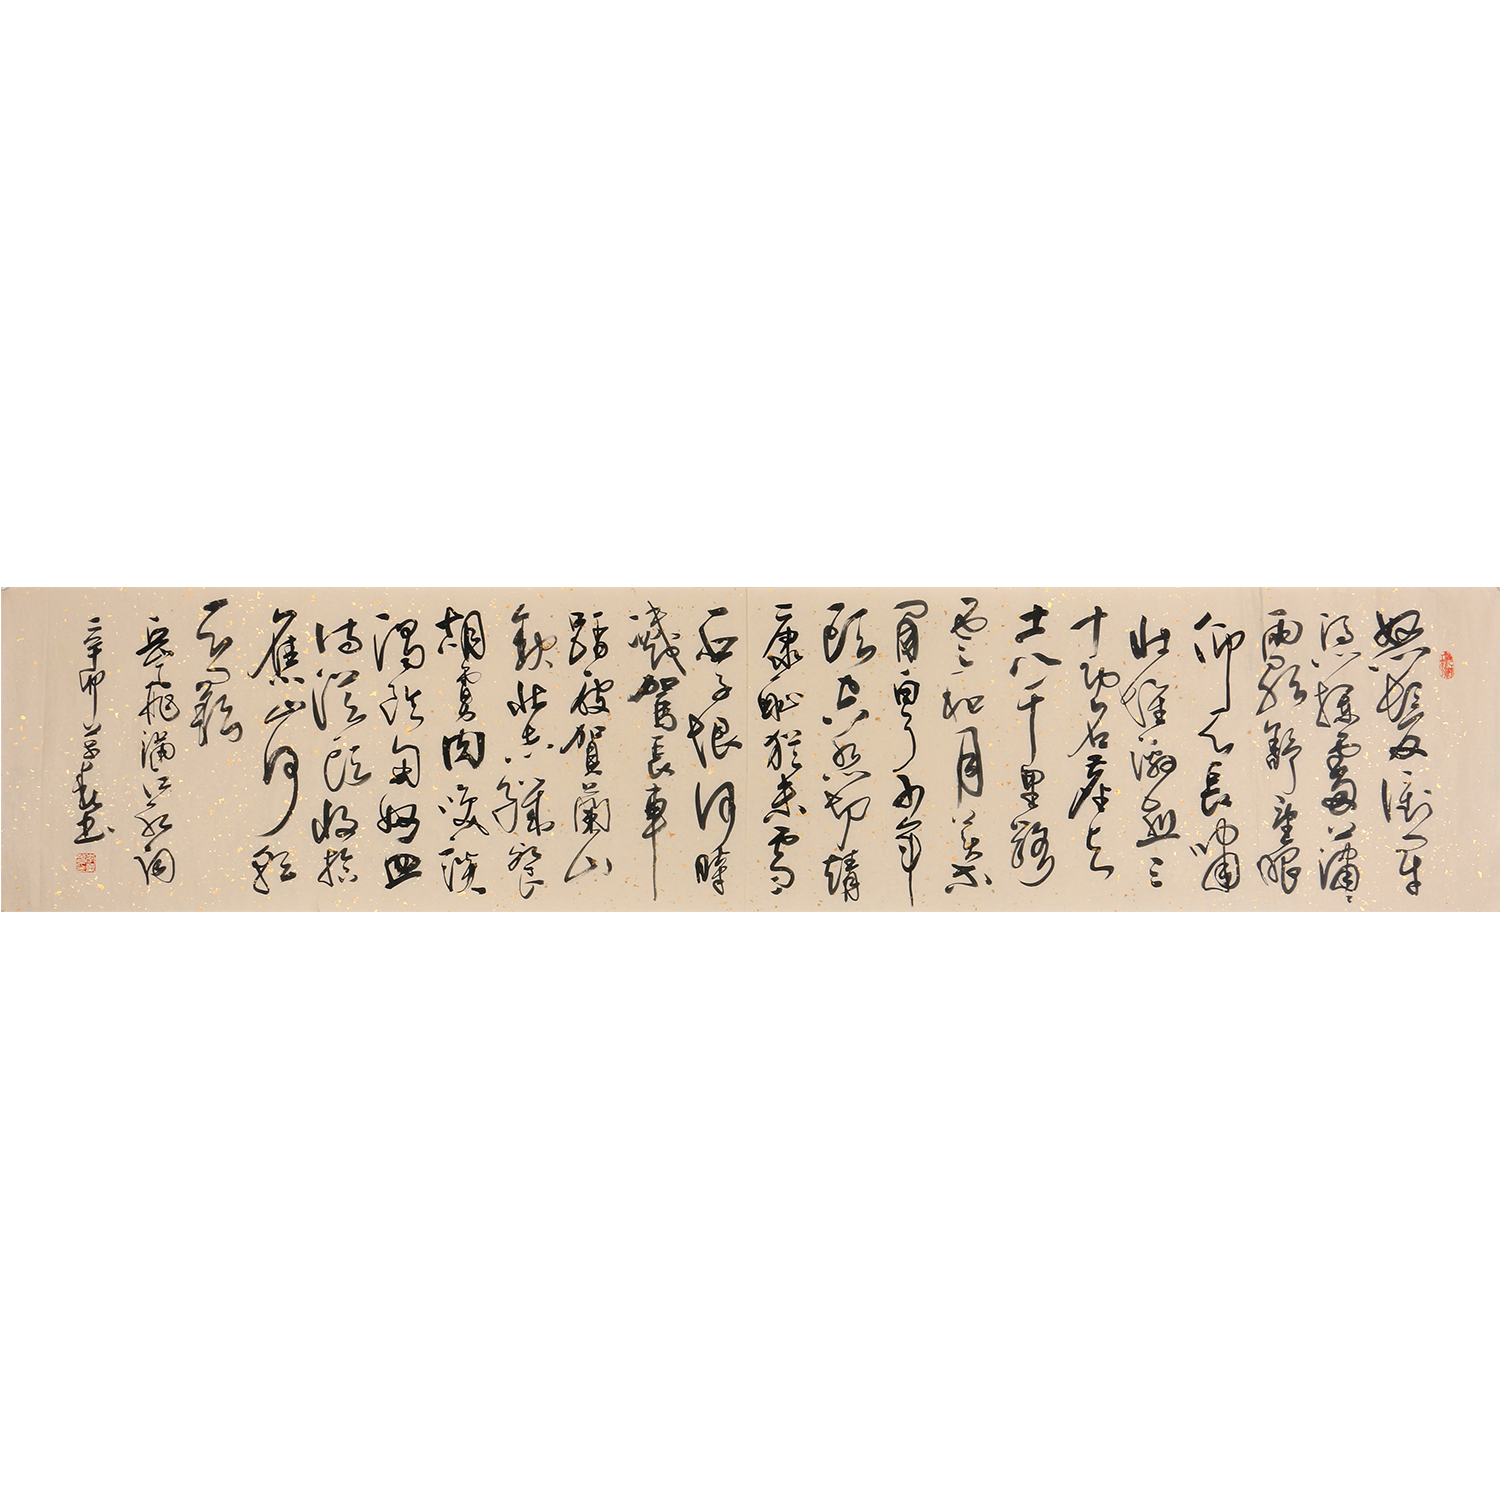 怒髮衝冠
憑欄處瀟々
雨歇擡望眼
仰天長嘯
壯懷激烈三
十功名塵與
土八千里路
雲和月莫等
閑白了少年
頭空悲切靖
康耻猶未雪
臣子恨何時
滅駕長車
踏破賀蘭山
缺壯志饑餐
胡虜肉笑談
渴飲匈奴血
待從頭收拾
舊山河朝
天闕
岳飛滿江紅詞
辛卯春書